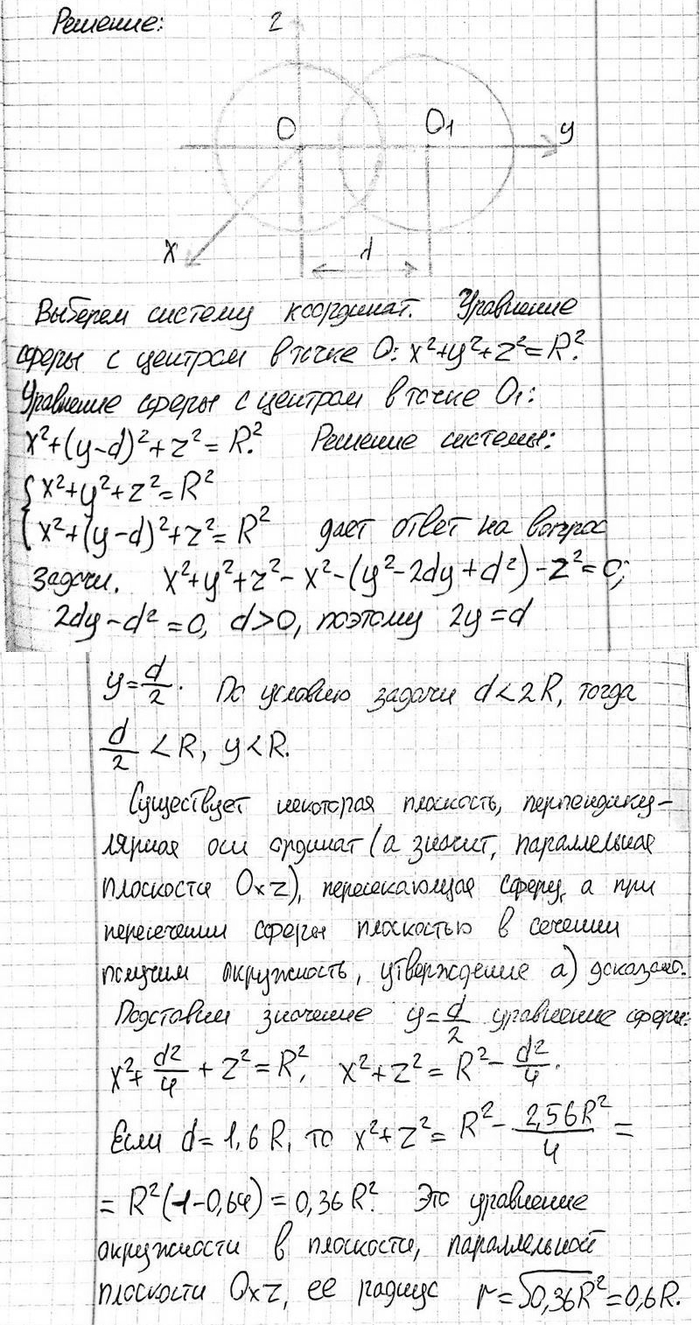 Решение:
z
O
O₁
y
x
d
Выберем систему координат. Уравнение
сферы с центром в точке O: x²+y²+z²=R².
Уравнение сферы с центром в точке O₁:
x²+(y-d)²+z²=R². Решение системы:
{x²+y²+z²=R²
{x²+(y-d)²+z²=R² дает ответ на вопрос
задачи. x²+y²+z²-x²-(y²-2dy+d²)-z²=0;
2dy-d²=0, d>0, поэтому 2y=d
y=d/2. По условию задачи d<2R, тогда
d/2<R, y<R.
Существует некоторая плоскость, перпендику-
лярная оси ординат (а значит, параллельная
плоскости Oxz), пересекающая сферу, а при
пересечении сферы плоскостью в сечении
получим окружность, утверждение а) доказано.
Подставим значение y=d/2 уравнение сферы:
x²+d²/4+z²=R², x²+z²=R²-d²/4.
Если d=1,6R, то x²+z²=R²-2,56R²/4=
=R²(1-0,64)=0,36R². Это уравнение
окружности в плоскости, параллельной
плоскости Oxz, ее радиус r=√0,36R²=0,6R.